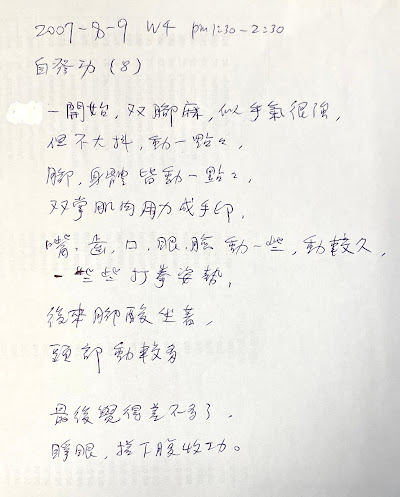 2007-8-9 W4 pm1:30-2:30
自發功(8)
一開始,双腳麻,似乎氣很強,
但不大抖,動一點々,
腳,身體皆動一點々,
双掌肌肉用力成手印,
嘴、齒、口、眼、臉動一些,動較久,
一些些打拳姿勢,
後來腳酸坐著,
頭部動較多
最後覺得差不多了,
睜眼,搓下腹收功。